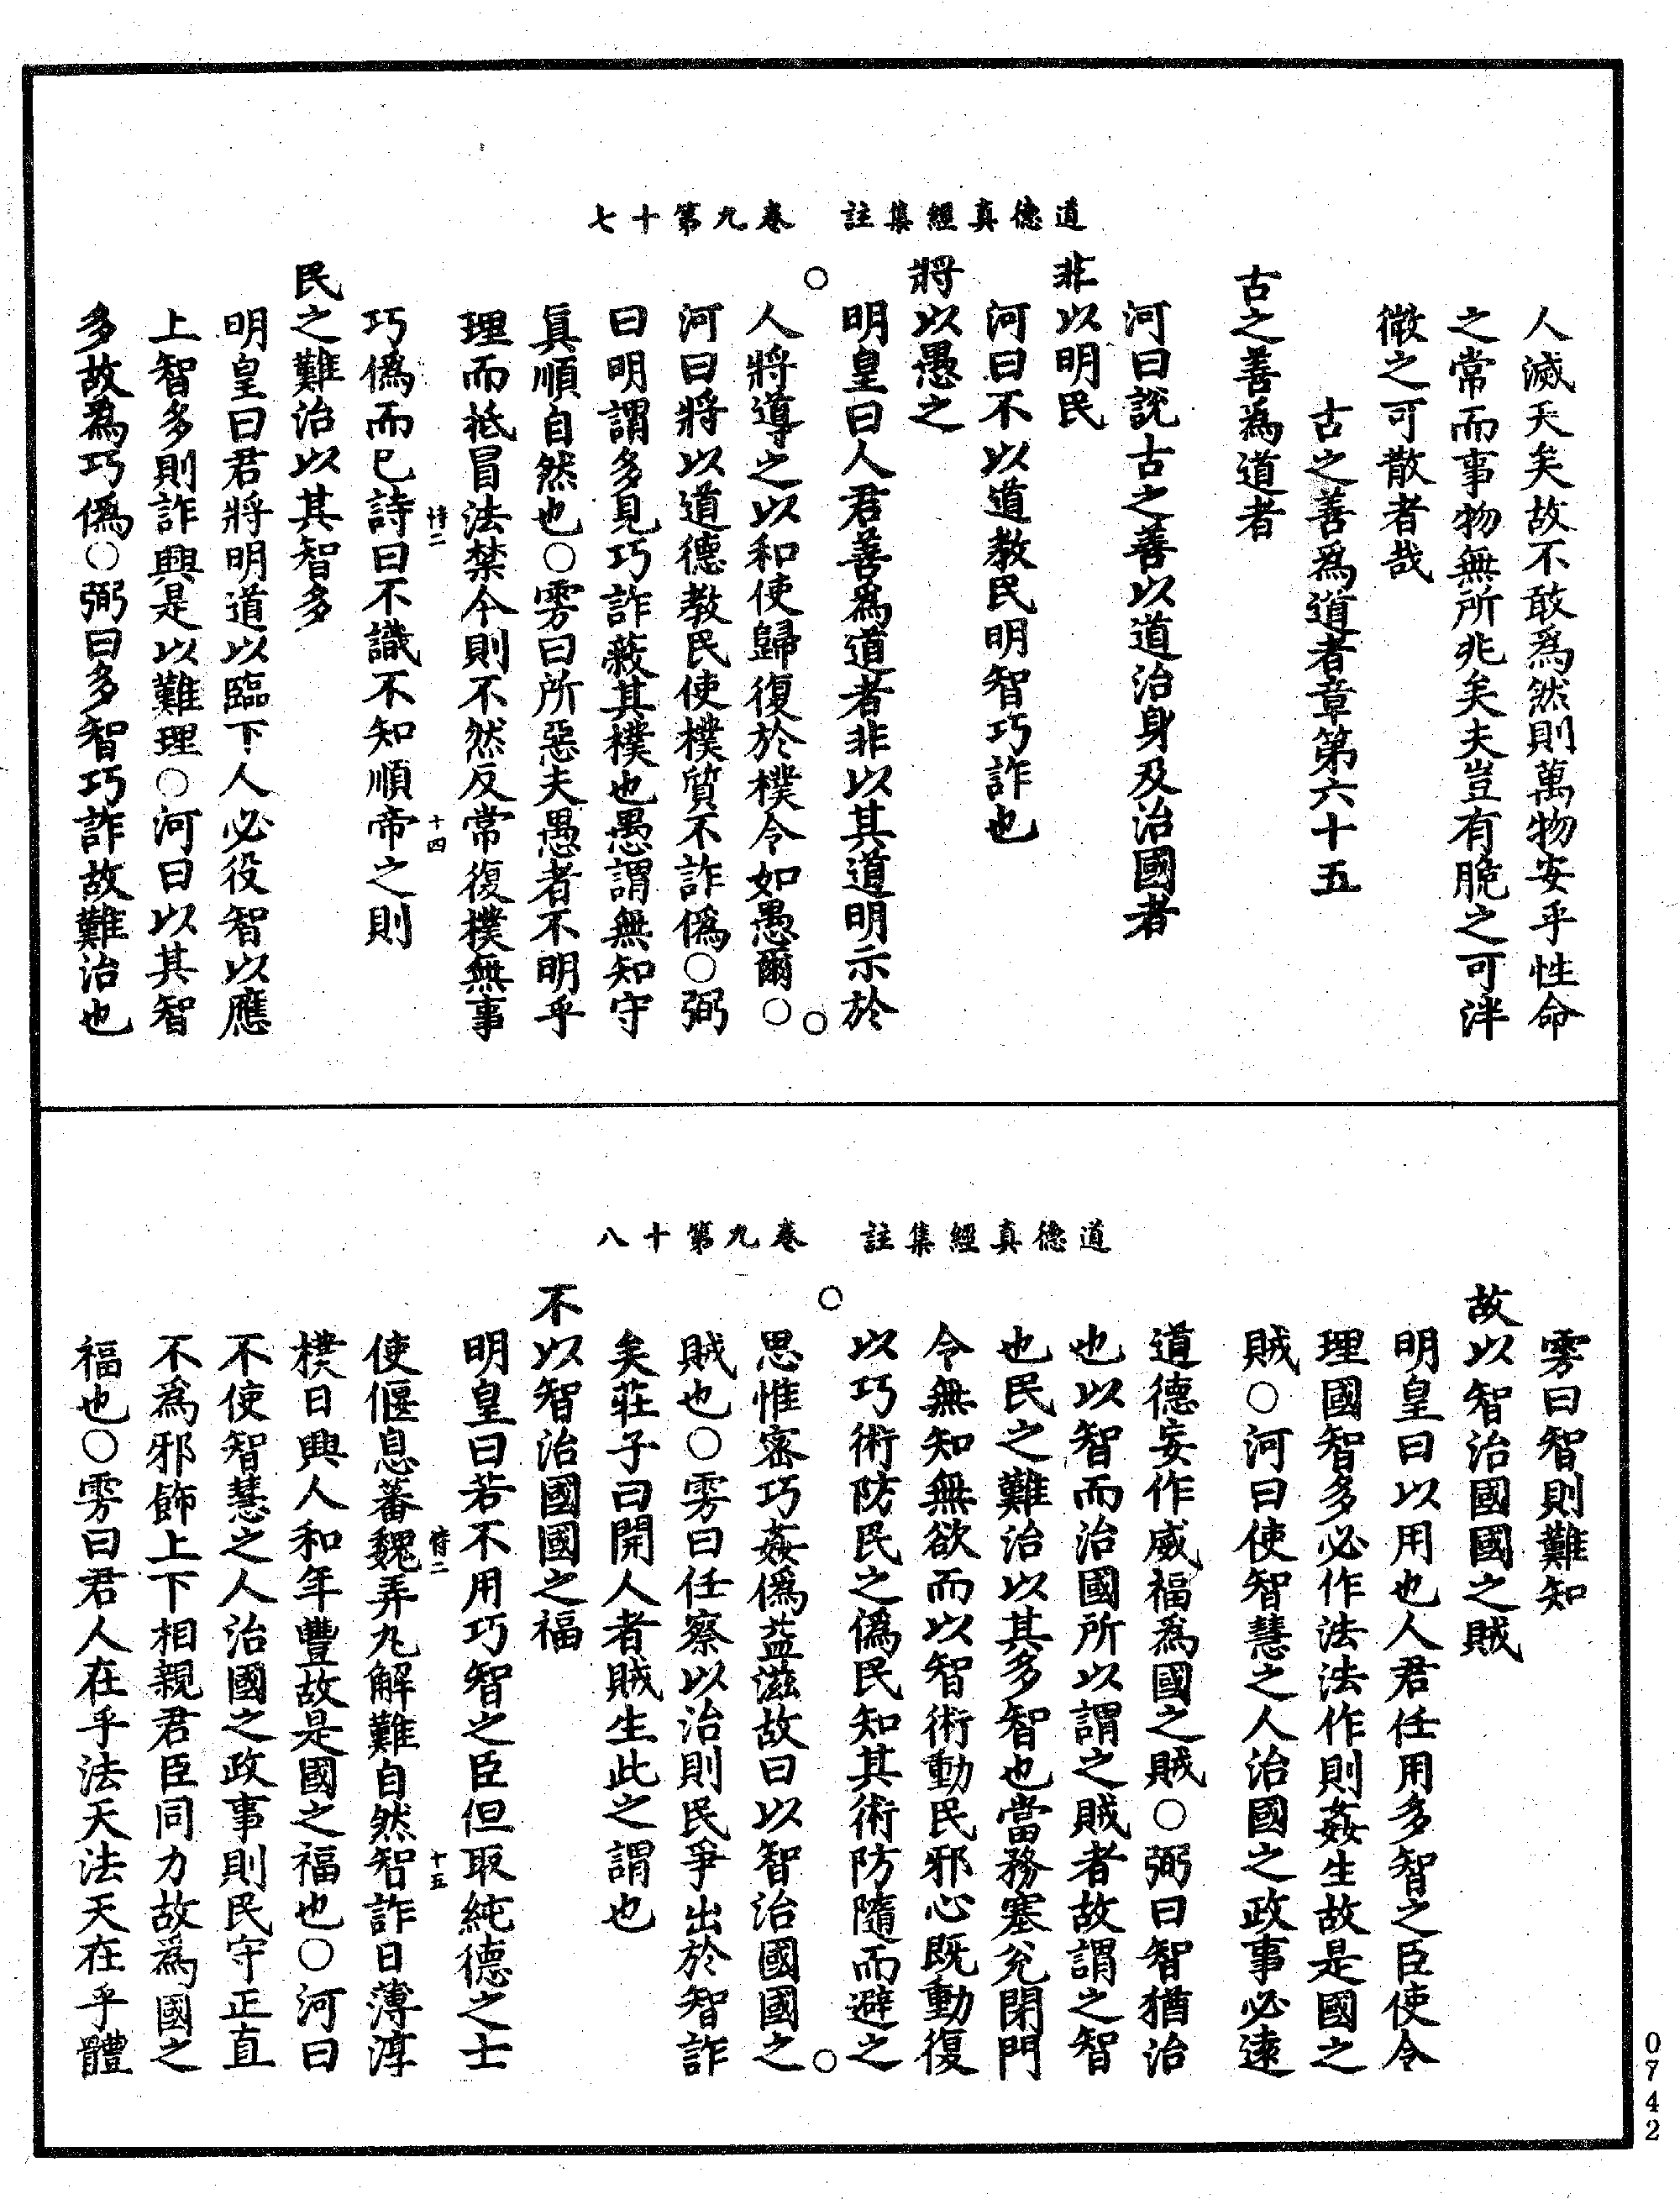 道德真經集註　卷九第十七
人滅天矣故不敢爲然則萬物安乎性命
之常而事物無所兆矣夫豈有脆之可泮
微之可散者哉
古之善爲道者章第六十五
古之善為道者
河曰說古之善以道治身及治國者
非以明民
河曰不以道教民明智巧詐也
將以愚之
明皇曰人君善爲道者非以其道明示於
人將導之以和使歸復於樸令如愚爾○
河曰將以道德教民使樸質不詐僞○弼
曰明謂多見巧詐蔽其樸也愚謂無知守
真順自然也○雱曰所惡夫愚者不明乎
理而抵冒法禁今則不然反常復樸無事
巧僞而已詩曰不識不知順帝之則
恃二　十四
民之難治以其智多
明皇曰君將明道以臨下人必役智以應
上智多則詐興是以難理○河曰以其智
多故爲巧僞○弼曰多智巧詐故難治也
道德真經集註　卷九第十八
雱曰智則難知
故以智治國國之賊
明皇曰以用也人君任用多智之臣使令
理國智多必作法法作則姦生故是國之
賊○河曰使智慧之人治國之政事必遠
道德妄作威福爲國之賊○弼曰智猶治
也以智而治國所以謂之賊者故謂之智
也民之難治以其多智也當務塞兌閉門
令無知無欲而以智術動民邪心既動復
以巧術防民之僞民知其術防隨而避之
思惟密巧姦僞益滋故曰以智治國國之
賊也○雱曰任察以治則民爭出於智詐
矣莊子曰開人者賊生此之謂也
不以智治國國之福
明皇曰若不用巧智之臣但取純德之士
恃二　十五
使偃息蕃魏弄丸解難自然智詐日薄淳
樸日興人和年豐故是國之福也○河曰
不使智慧之人治國之政事則民守正直
不爲邪飾上下相親君臣同力故爲國之
福也○雱曰君人在乎法天法天在乎體
0742